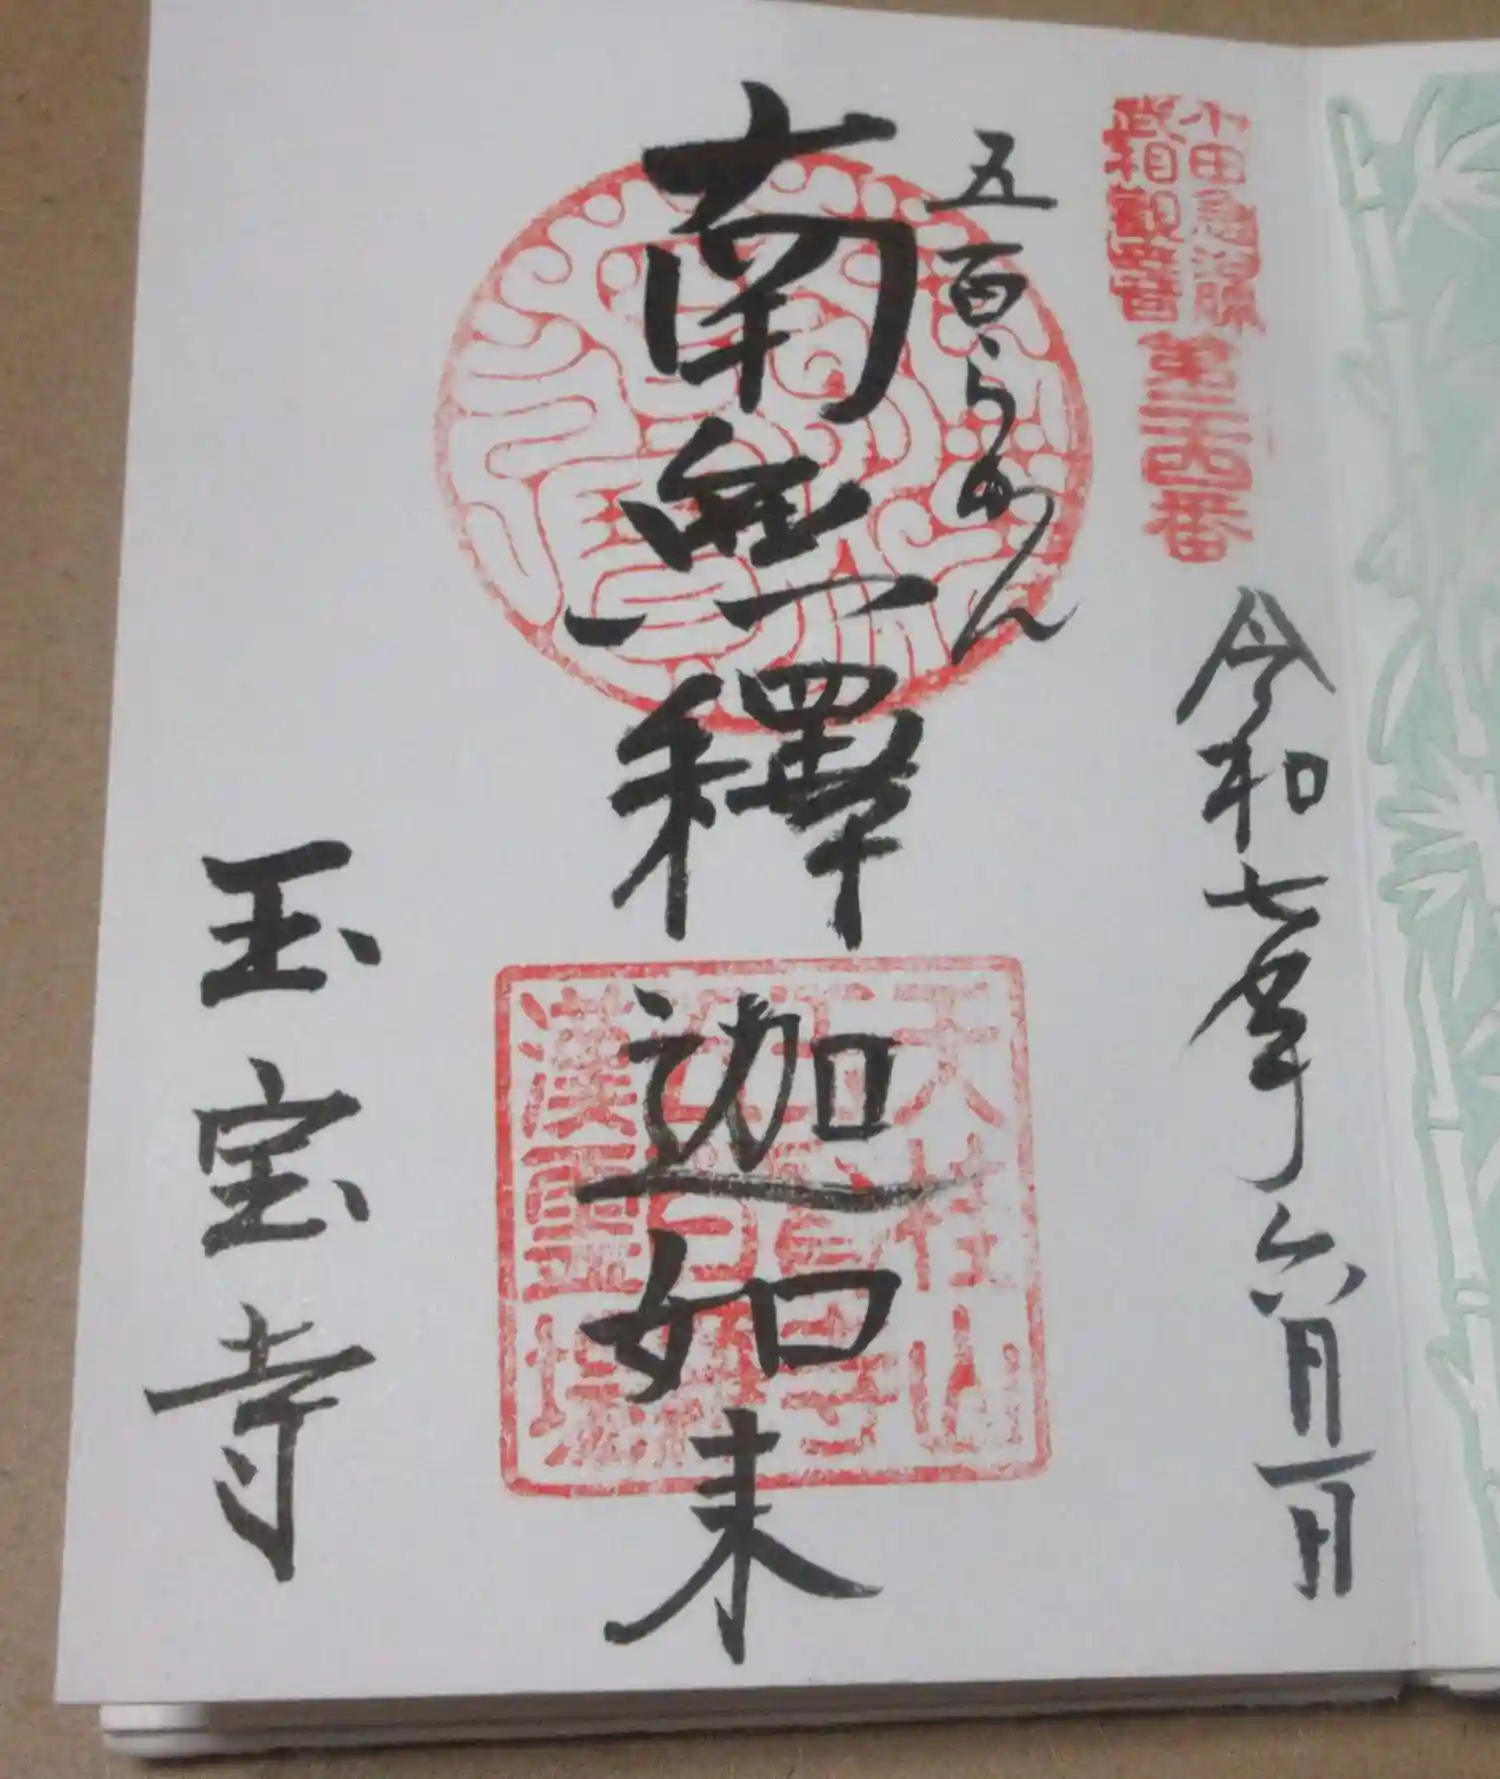 小田急沿線
武相観音
第二十四番
令和七年六月一日
五百らかん
南無釋迦如来
天桂山
玉宝寺